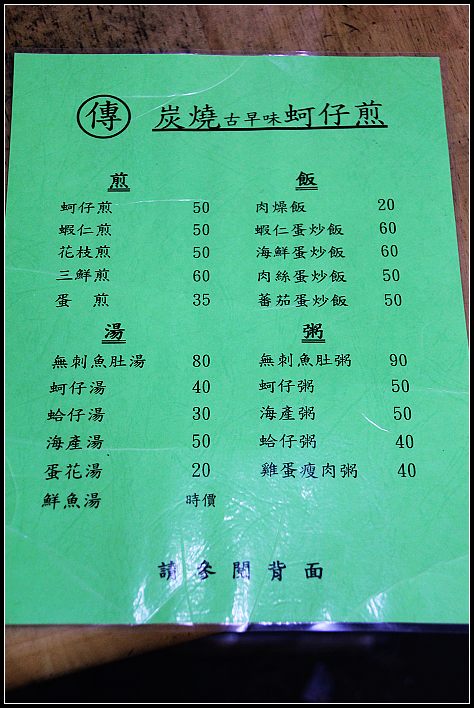 傳 炭燒古早味蚵仔煎
煎
蚵仔煎 50
蝦仁煎 50
花枝煎 50
三鮮煎 60
蛋 煎 35
飯
肉燥飯 20
蝦仁蛋炒飯 60
海鮮蛋炒飯 60
肉絲蛋炒飯 50
蕃茄蛋炒飯 50
湯
無刺魚肚湯 80
蚵仔湯 40
蛤仔湯 30
海產湯 50
蛋花湯 20
鮮魚湯 時價
粥
無刺魚肚粥 90
蚵仔粥 50
海產粥 50
蛤仔粥 40
雞蛋瘦肉粥 40
請參閱背面